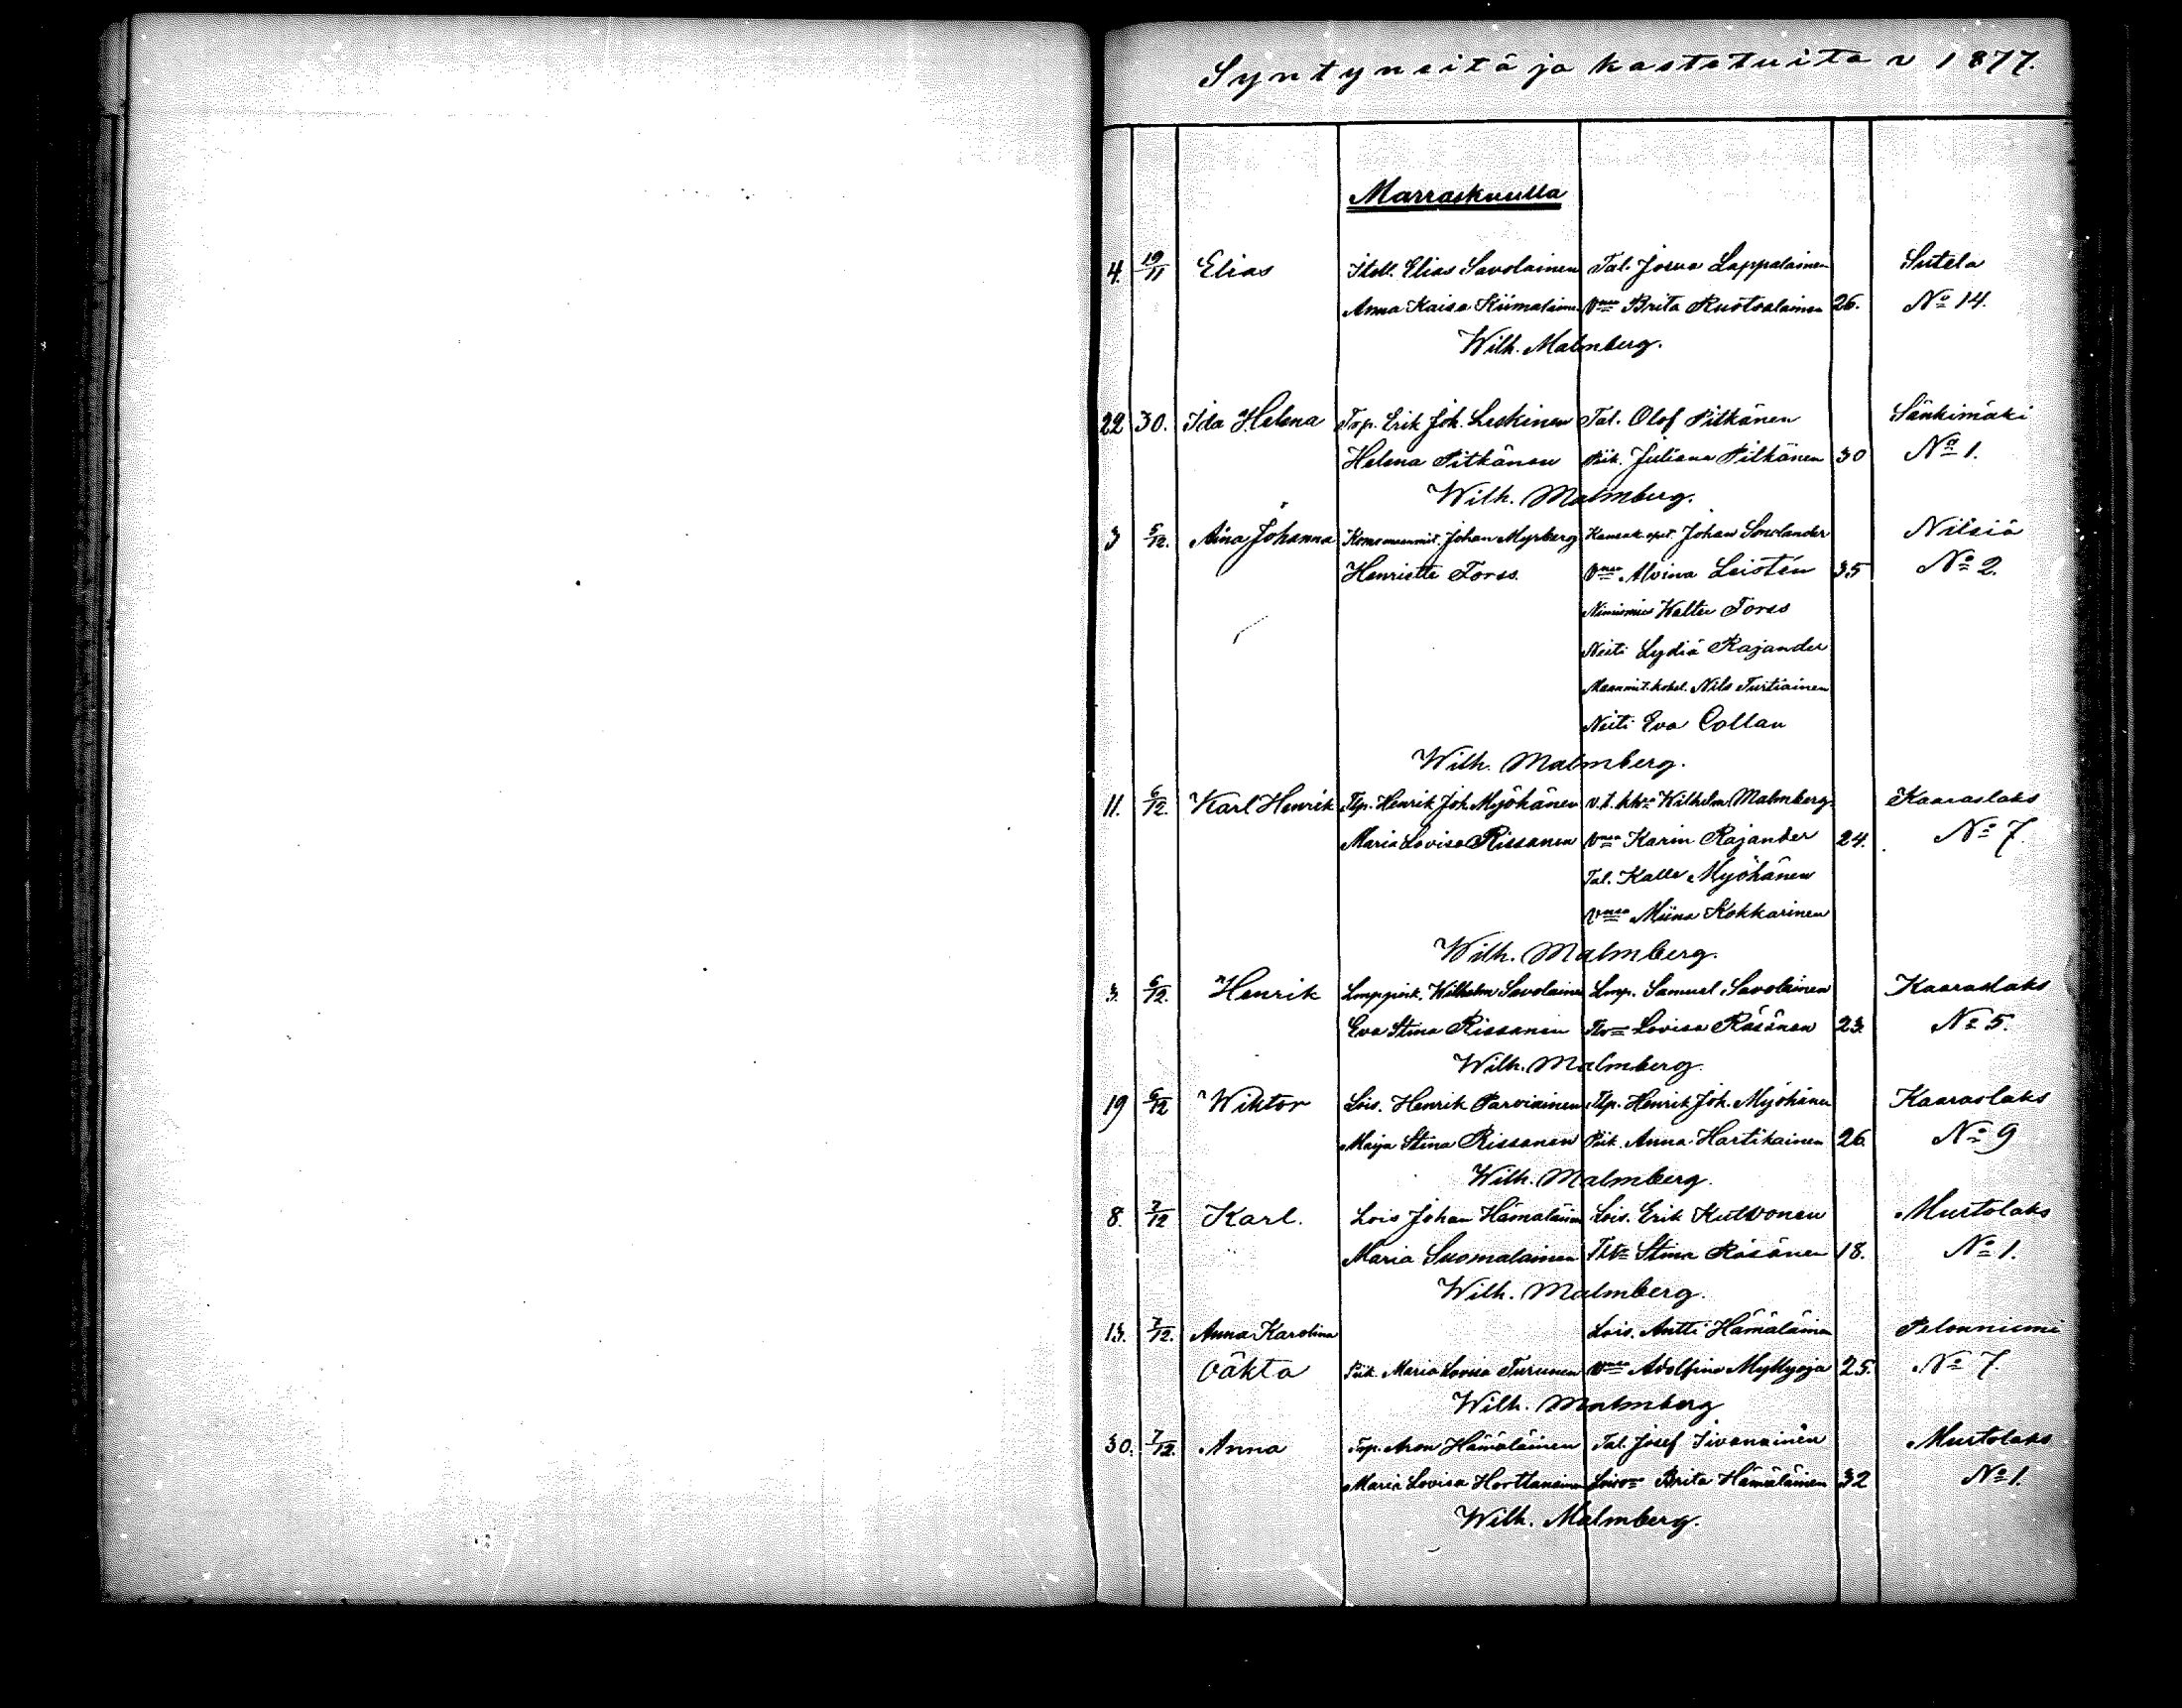 Syntyneitä ja kastetuita v 1877.
Marraskuulla
4. 19/11 Elias Itsll. Elias Savolainen Tal. Josua Lappalainen Siitela
Anna Kaisa Kiimalainen Vmo Brita Ruotsalainen 26. No 14.
Wilh. Malmberg.
22 30. Ida Helena Trp. Erik Joh. Leskinen Tal. Olof Pitkänen Sänkimäki
Helena Pitkänen Piik. Juliana Pitkänen 30 No 1.
Wilh. Malmberg.
3 5/12. Aina Johanna Johan Myrberg Kansak. opet. Johan Nilsiä
Henriette Forss. Vmo Alvina Leistén 35 No 2.
Nimismies Walter Forss
Neiti Lydia Rajander
Nils Turtiainen
Neiti Eva Collan
Wilh. Malmberg.
11. 6/12. Karl Henrik Tlp. Henrik Joh. Myöhänen v.t. khra Wilhelm Malmberg Kaaraslaks
Maria Lovisa Rissanen Vmo Karin Rajander 24. No 7.
Tal. Kalle Myöhänen
Vmo Miina Kokkarinen
Wilh. Malmberg.
3. 6/12. Henrik Lmp.poik. Wilhelm Savolainen Lmp. Samuel Savolainen Kaaraslaks
Eva Stina Rissanen Lovisa Räsänen 23. No 5.
Wilh. Malmberg.
19 6/12 Wiktor Lois. Henrik Parviainen Tlp. Henrik Joh. Myöhänen Kaaraslaks
Maija Stina Rissanen Piik. Anna Hartikainen 26. No 9
Wilh. Malmberg.
8. 7/12 Karl. Lois Johan Hämäläinen Lois. Erik Kutvonen Murtolaks
Maria Suomalainen Stina Räsänen 18. No 1.
Wilh. Malmberg.
13. 7/12. Anna Karolina Lois. Antti Hämäläinen Pelonniemi
oäkta Piik. Maria Lovisa Turunen Vmo Adolfina Myllyoja 25. No 7.
Wilh. Malmberg
30. 7/12. Anna Trp. Aron Hämäläinen Tal. Josef Iivanainen Murtolaks
Maria Lovisa Horttanainen Brita Hämäläinen 32 No 1.
Wilh. Malmberg.